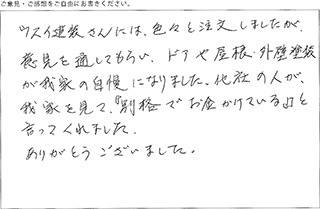 ご意見・ご感想をご自由にお書きください。
ウスイ建装さんには、色々と注文しましたが、
意見を通してもらい、ドアや屋根・外壁塗装
が我家の自慢になりました。他社の人が、
我家を見て、『別格でお金かけている』と
言ってくれました。
ありがとうございました。